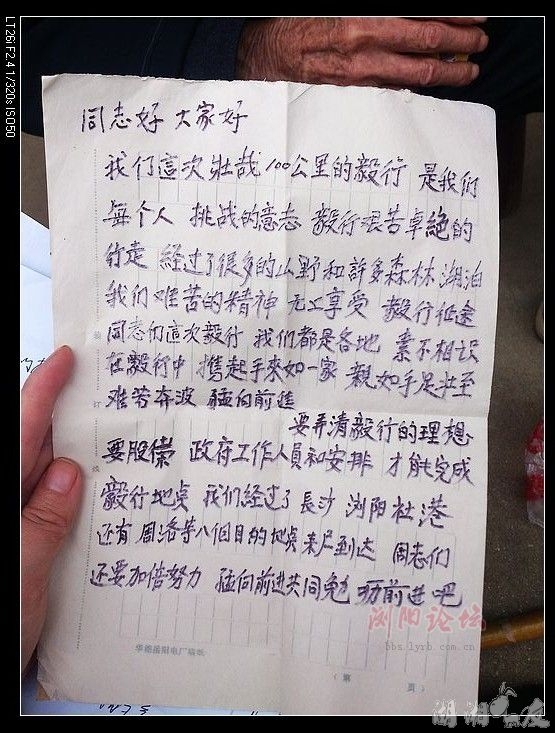 LT26i F2.4 1/320s ISO50
同志好 大家好
我们這次壮哉100公里的毅行 是我们
每个人 挑战的意志 毅行艰苦卓絶的
行走 经过了很多的山野和許多森林湖泊
我们难苦的精神 无工享受 毅行征途
同志们這次毅行 我们都是各地 素不相识
在毅行中 携起手來如一家 親如手足壮至
难苦奔波 猛向前進
要弄清毅行的理想
要股 政府工作人員和安排 才能完成
毅行地点 我们经过了 長沙 浏阳社港
还有 周洛等八個目的地点 未尽到达 同志们
还要加倍努力 猛向前进共同勉 前進吧
浏阳论坛
bbs.lyrb.com.cn
华能岳阳电厂稿纸
（第 页）
湖湘 友